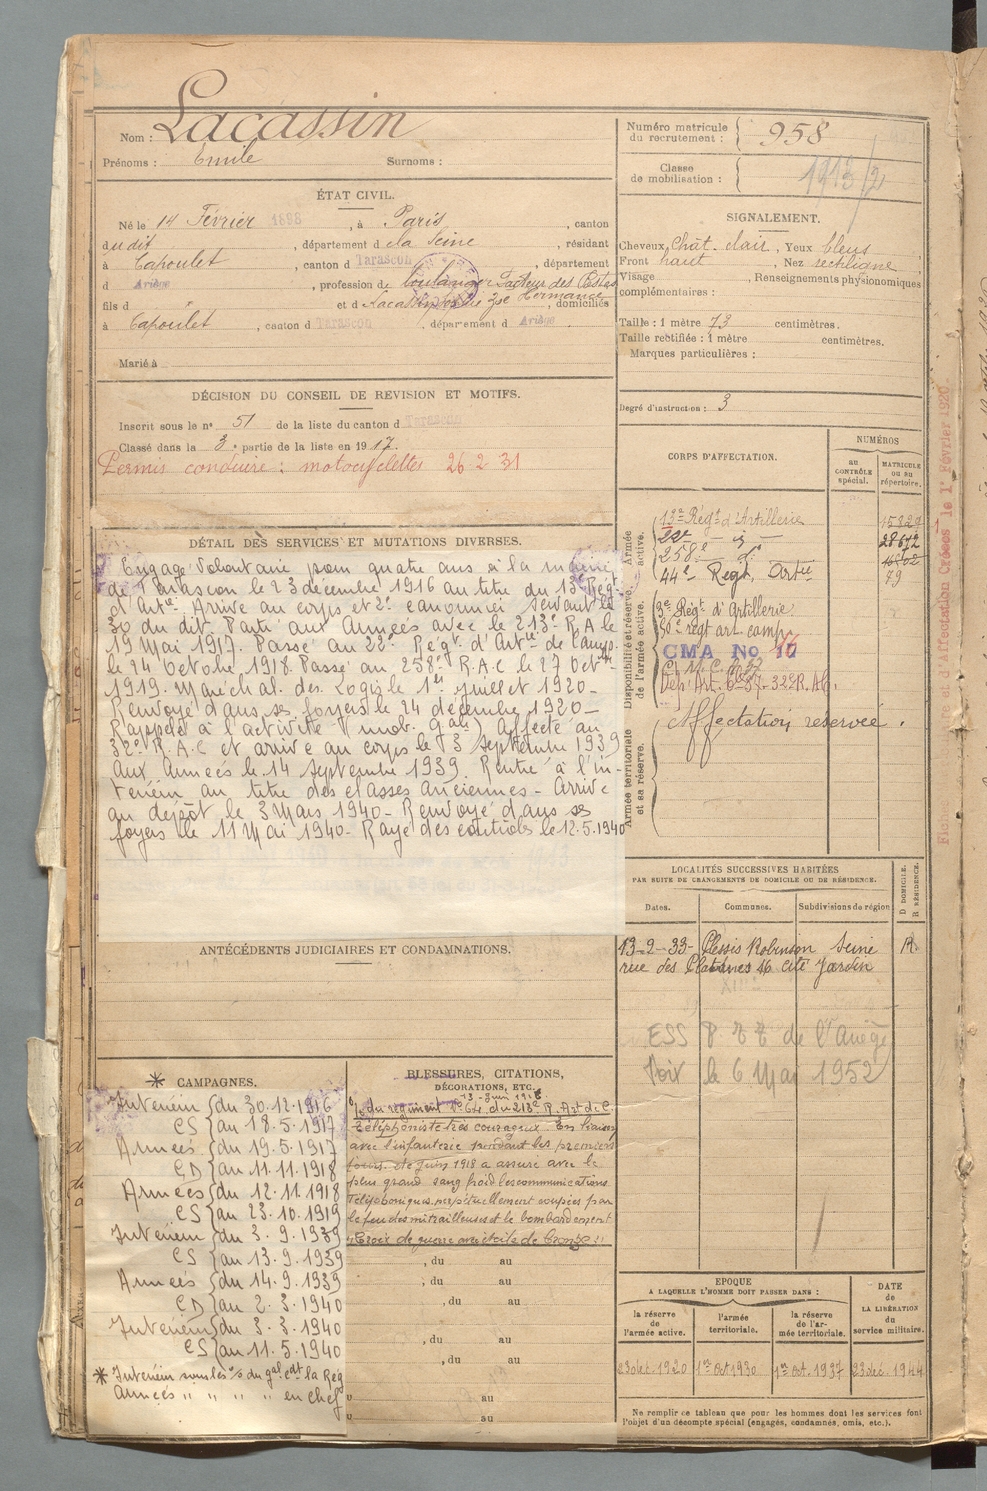 Nom : Lacassin
Prénoms : Emile Surnoms :
ÉTAT CIVIL.
Né le 14 Février 1898, à Paris, canton
dudit, département de la Seine, résidant
à Capoulet, canton de Tarascon, département
d Ariège, profession de boulanger Facteur des Postes
fils d " et d Lacassin Rose Hermance, domiciliés
à Capoulet, canton d Tarascon, département d Ariège.
Marié à
DÉCISION DU CONSEIL DE REVISION ET MOTIFS.
Inscrit sous le n° 51 de la liste du canton d Tarascon
Classé dans la 3e partie de la liste en 1917.
Permis conduire : motocyclettes 26 2 31
DÉTAIL DES SERVICES ET MUTATIONS DIVERSES.
Engagé Volontaire pour quatre ans à la mairie
de Tarascon le 23 décembre 1916 au titre du 13e Régt
d'Artie. Arrivé au corps et 2e canonnier servant le
30 du dit. Parti aux Armées avec le 213e R.A le
19 Mai 1917. Passé au 22e Régt d'Artie de Camp.
le 24 Octobre 1918. Passé au 258e R.A.C le 27 Octbre
1919. Maréchal des Logis le 1er juillet 1920 -
Renvoyé dans ses foyers le 24 décembre 1920 -
Rappelé à l'activité (mob. Gale) Affecté au
32e R.A.C et arrivé au corps le 3 Septembre 1939
Aux Armées le 14 Septembre 1939. Rentré à l'in-
térieur au titre des classes anciennes - Arrivé
au dépôt le 3 Mars 1940 - Renvoyé dans ses
foyers le 11 Mai 1940 - Rayé des contrôles le 12.5.1940
ANTÉCÉDENTS JUDICIAIRES ET CONDAMNATIONS.
* CAMPAGNES.
Intérieur { du 30.12.1916
CS { au 18.5.1917
Armées { du 19.5.1917
CD { au 11.11.1918
Armées { du 12.11.1918
CS { au 23.10.1919
Intérieur { du 3.9.1939
CS { au 13.9.1939
Armées { du 14.9.1939
CD { au 2.3.1940
Intérieur { du 3.3.1940
CS { au 11.5.1940
* Intérieur sous les o/s du gal cdt la Rég
Armées " " " " en chef
BLESSURES, CITATIONS,
DÉCORATIONS, ETC.
13 - Juin 1918
du régiment N° 64 du 213e R. Art de C.
Téléphoniste très courageux. En liaison
avec l'infanterie pendant les premiers
jours de Juin 1918 a assuré avec le
plus grand sang froid les communications
Téléphoniques perpétuellement coupées par
le feu des mitrailleuses et le bombardement
"Croix de guerre avec étoile de bronze"
, du au
, du au
, du au
, du au
, du au
au
au
Numéro matricule
du recrutement : 958
Classe
de mobilisation : 1913/2
SIGNALEMENT.
Cheveux Chât. clair, Yeux bleus
Front haut, Nez rectiligne
Visage Renseignements physionomiques
complémentaires :
Taille : 1 mètre 73 centimètres.
Taille rectifiée : 1 mètre centimètres.
Marques particulières :
Degré d'instruction : 3
CORPS D'AFFECTATION.
NUMÉROS
au
CONTRÔLE
spécial.
MATRICULE
ou au
répertoire.
Disponibilité et réserve
de l'armée active.
Armée
active.
13e Régt d'Artillerie 15829
22e - d° - 28672
258e - d°
44e Regt. Artie 79
3e Régt d'Artillerie
50e régt art camp
CMA No 16
Dép. Art. 32e R.A.
Armée territoriale
et sa réserve.
Affectation réservée.
LOCALITÉS SUCCESSIVES HABITÉES
PAR SUITE DE CHANGEMENTS DE DOMICILE OU DE RÉSIDENCE.
Dates. Communes. Subdivisions de région.
D DOMICILE.
R RÉSIDENCE.
13-9-33- Plessis Robinson Seine R
rue des Platanes 16 Cité Jardin
ESS P.T.T de l'Ariège
Foix le 6 Mai 1952
EPOQUE
A LAQUELLE L'HOMME DOIT PASSER DANS :
la réserve
de
l'armée active.
l'armée
territoriale.
la réserve
de l'ar-
mée territoriale.
DATE
de
LA LIBÉRATION
du
service militaire.
23 Oct. 1920 1er Oct 1930 1er Oct. 1937 23 déc. 1944
Ne remplir ce tableau que pour les hommes dont les services font
l'objet d'un décompte spécial (engagés, condamnés, omis, etc.).
et d'Affectation Créées le 1er Février 1920.